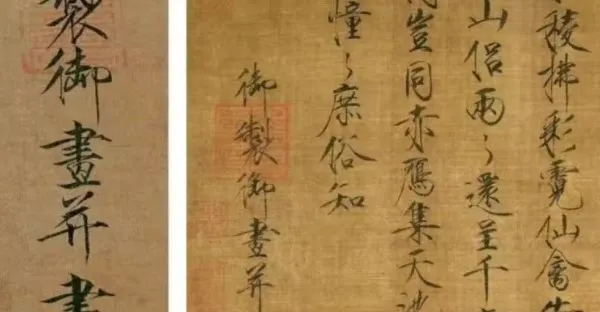 稜拂彩霓仙禽
山侶兩〻還呈千
豈同赤鴈集天池
憧〻庶俗知
御製御畫并
製御畫并書